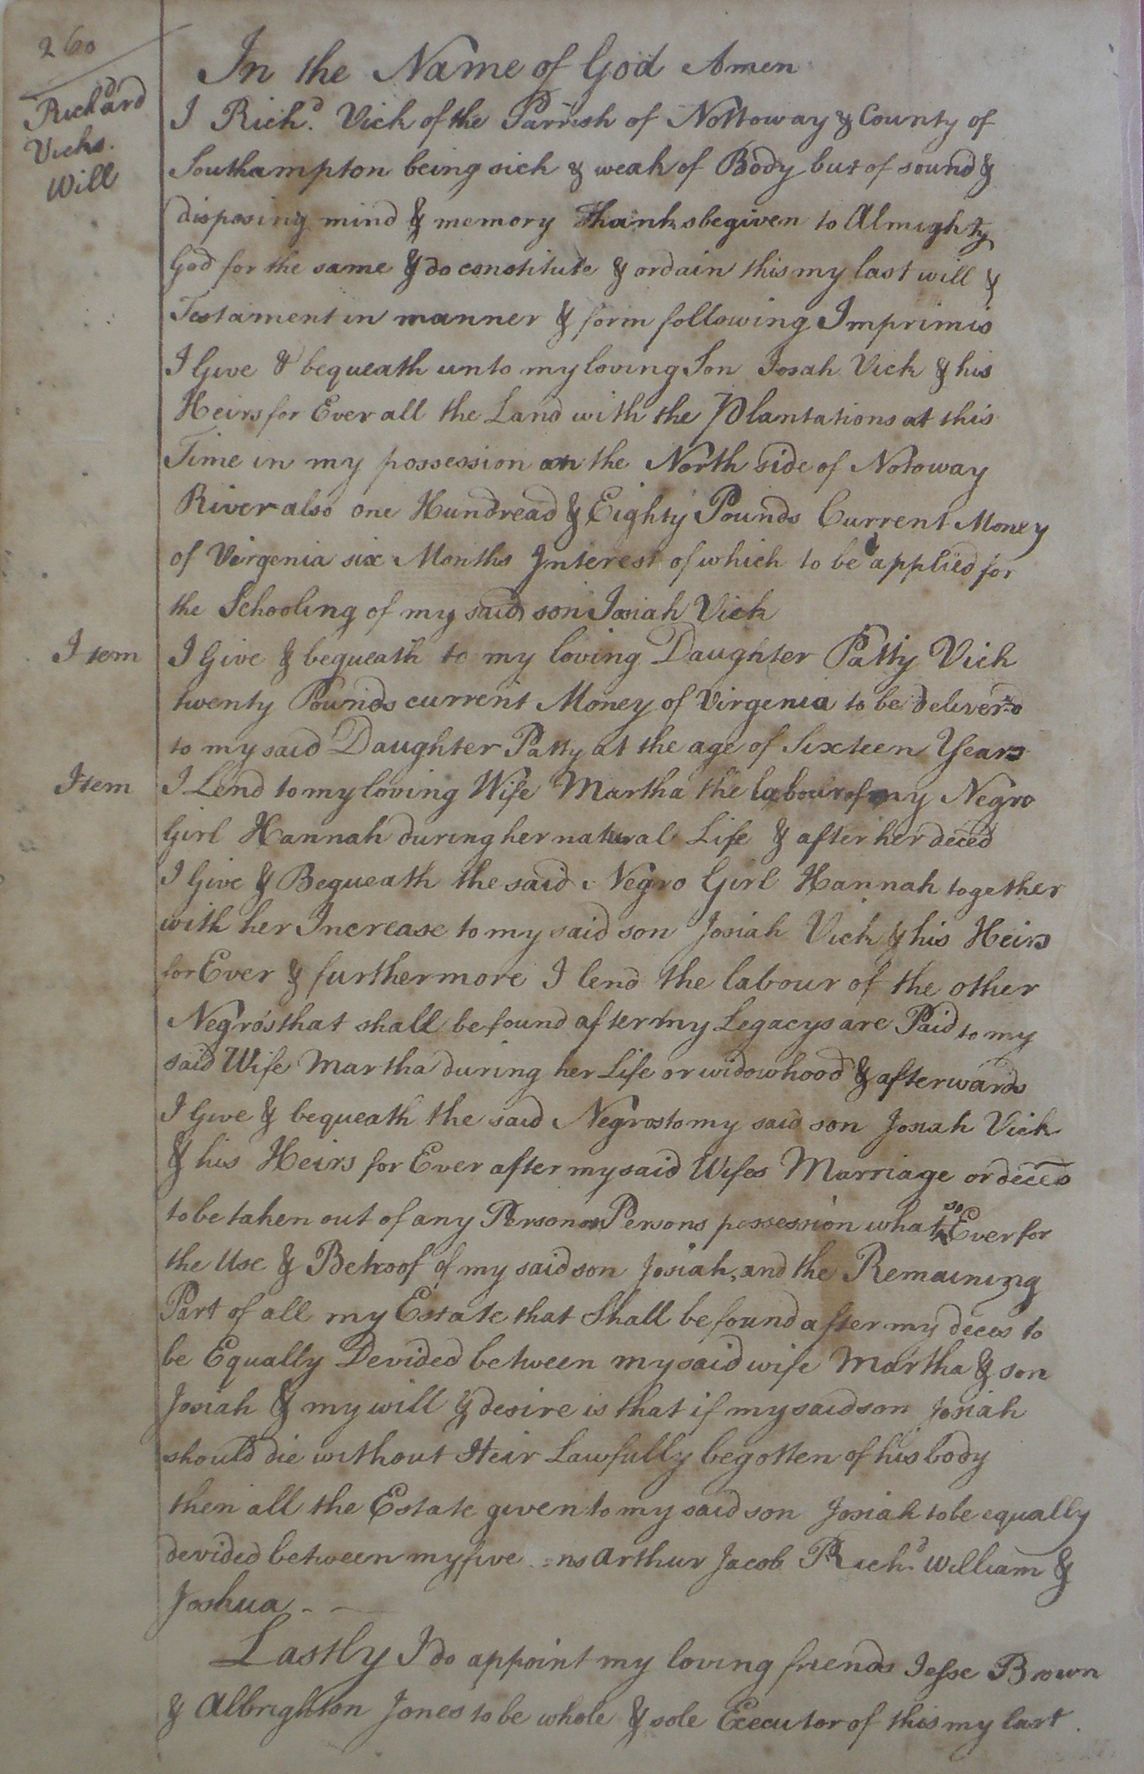 260
Richard
Vicks.
Will
In the Name of God Amen
I Richd. Vick of the Parrish of Nottoway & County of
Southampton being sick & weak of Body but of sound &
disposing mind & memory Thanks be given to Almighty
God for the same & do constitute & ordain this my last will &
Testament in manner & form following Imprimis
I Give & bequeath unto my loving Son Josah Vick & his
Heirs for Ever all the Land with the Plantations at this
Time in my possession on the North side of Notoway
River also one Hundread & Eighty Pounds Current Money
of Virgenia six Months Interest of which to be applied for
the Schooling of my said son Josiah Vick
Item I Give & bequeath to my loving Daughter Patty Vick
twenty Pounds current Money of Virgenia to be deliverd
to my said Daughter Patty at the age of Sixteen Years
Item I Lend to my loving Wife Martha the labour of my Negro
Girl Hannah during her natural Life & after her deced
I Give & Bequeath the said Negro Girl Hannah together
with her Increase to my said son Josiah Vick & his Heirs
for Ever & furthermore I lend the labour of the other
Negros that shall be found after my Legacys are Paid to my
said Wife Martha during her Life or widowhood & afterwards
I Give & bequeath the said Negros to my said son Josiah Vick
& his Heirs for Ever after my said Wifes Marriage or deces
to be taken out of any Person or Persons possession what so Ever for
the Use & Behoof of my said son Josiah, and the Remaining
Part of all my Estate that Shall be found after my deces to
be Equally Devided between my said wife Martha & son
Josiah & my will & desire is that if my said son Josiah
should die without Heir Lawfully begotten of his body
then all the Estate given to my said son Josiah to be equally
devided between my five ns Arthur Jacob Richd. William &
Joshua
Lastly I do appoint my loving friends Jesse Brown
& Albrighton Jones to be whole & sole Executor of this my last